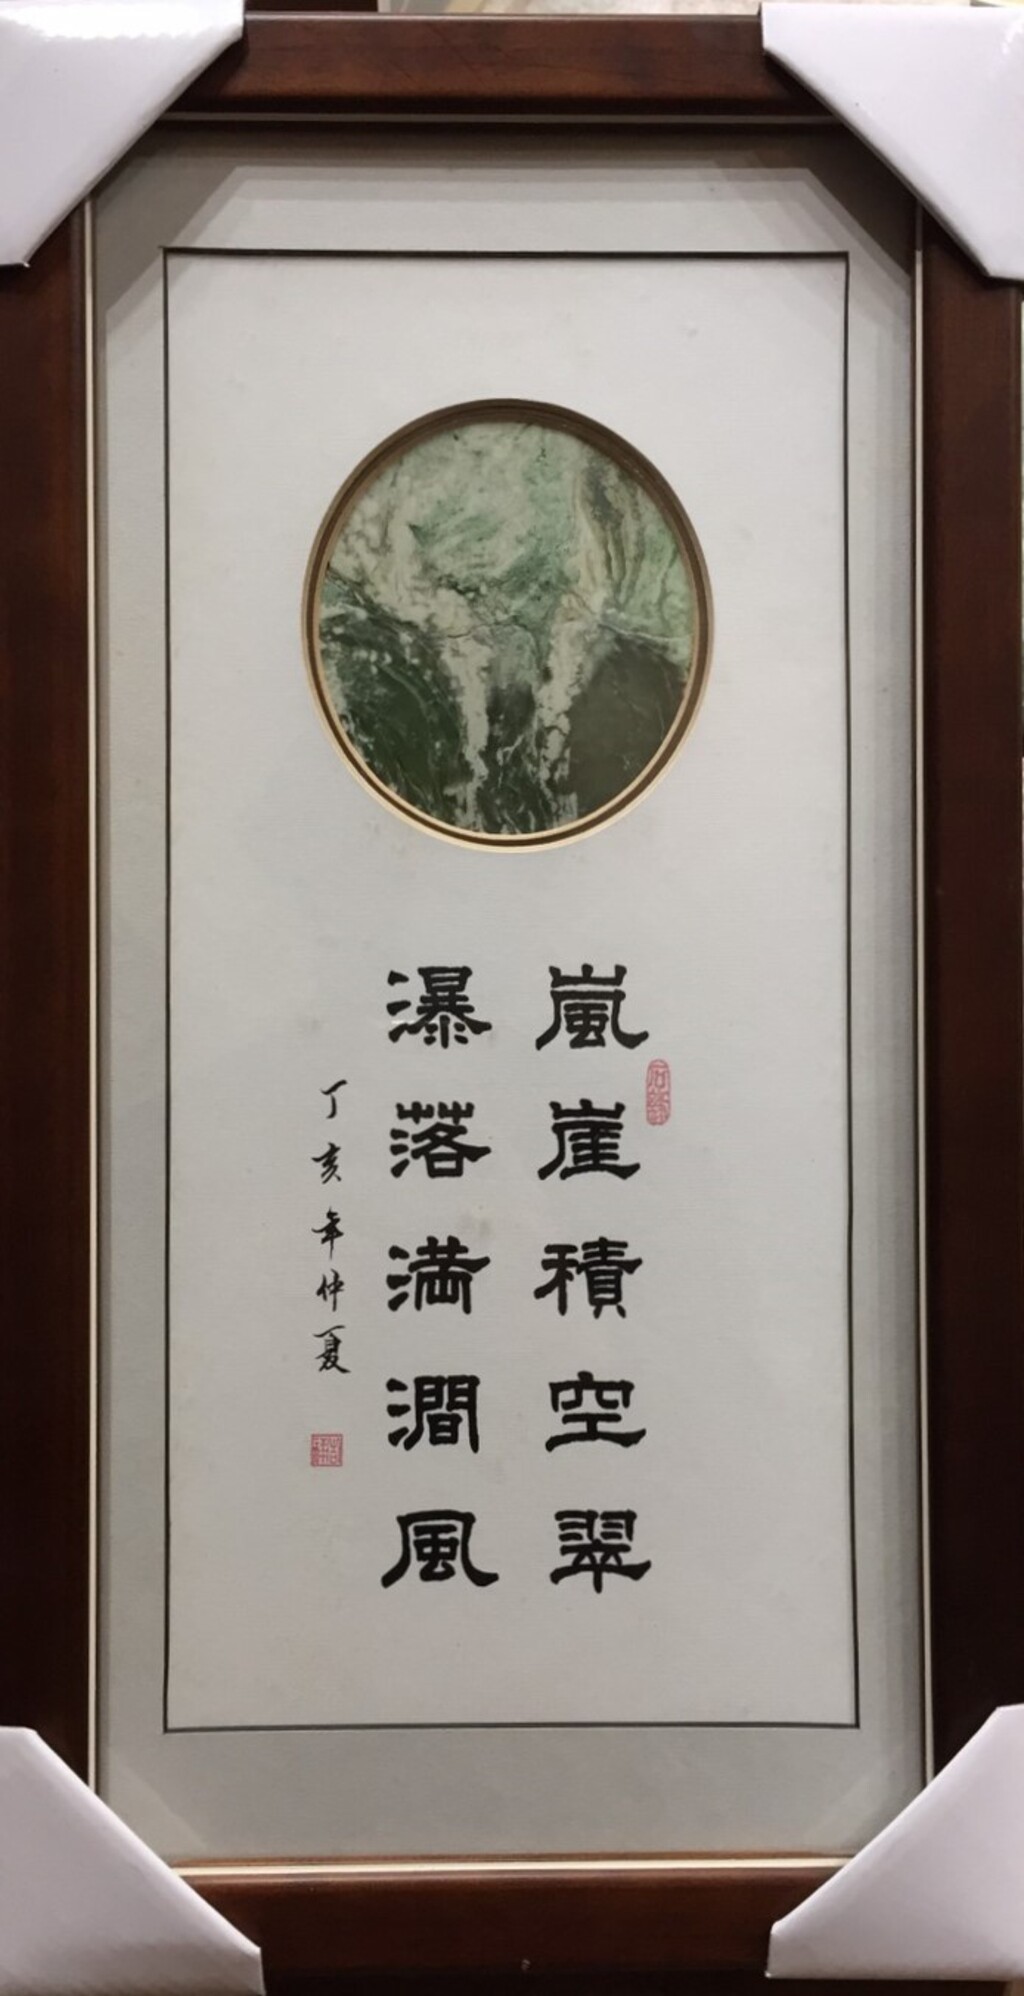 嵐崖積空翠
瀑落満澗風
丁亥年仲夏